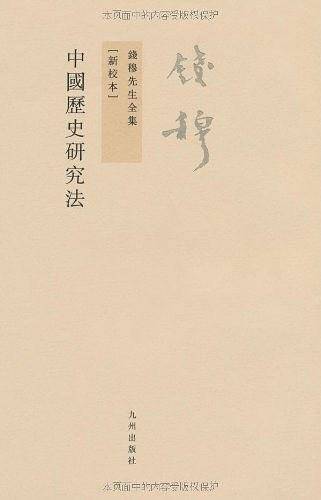 本页面中的内容受版权保护
錢穆
錢穆先生全集
[新校本]
中國歷史研究法
九州出版社
本页面中的内容受版权保护